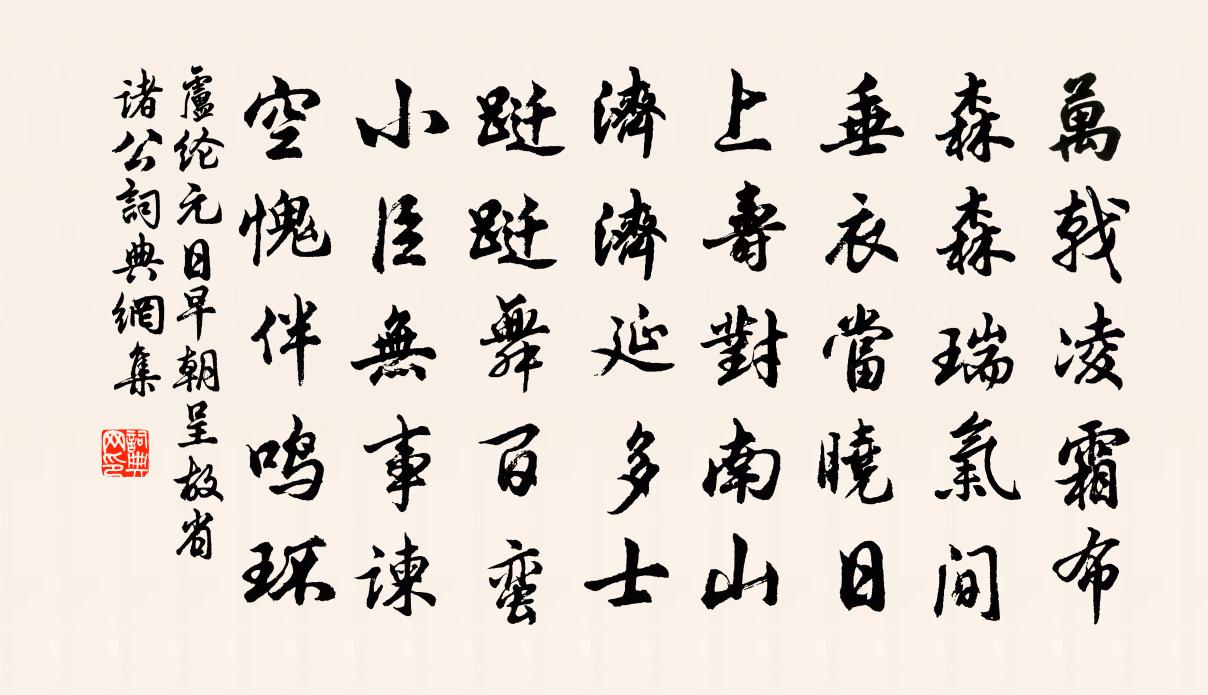 萬戟凌霜布
森森瑞氣間
垂衣當曉日
上壽對南山
濟濟延多士
躚躚舞百蠻
小臣無事諫
空愧伴鸣环
盧纶元日早朝呈故省
诸公詞典網集
詞典网印